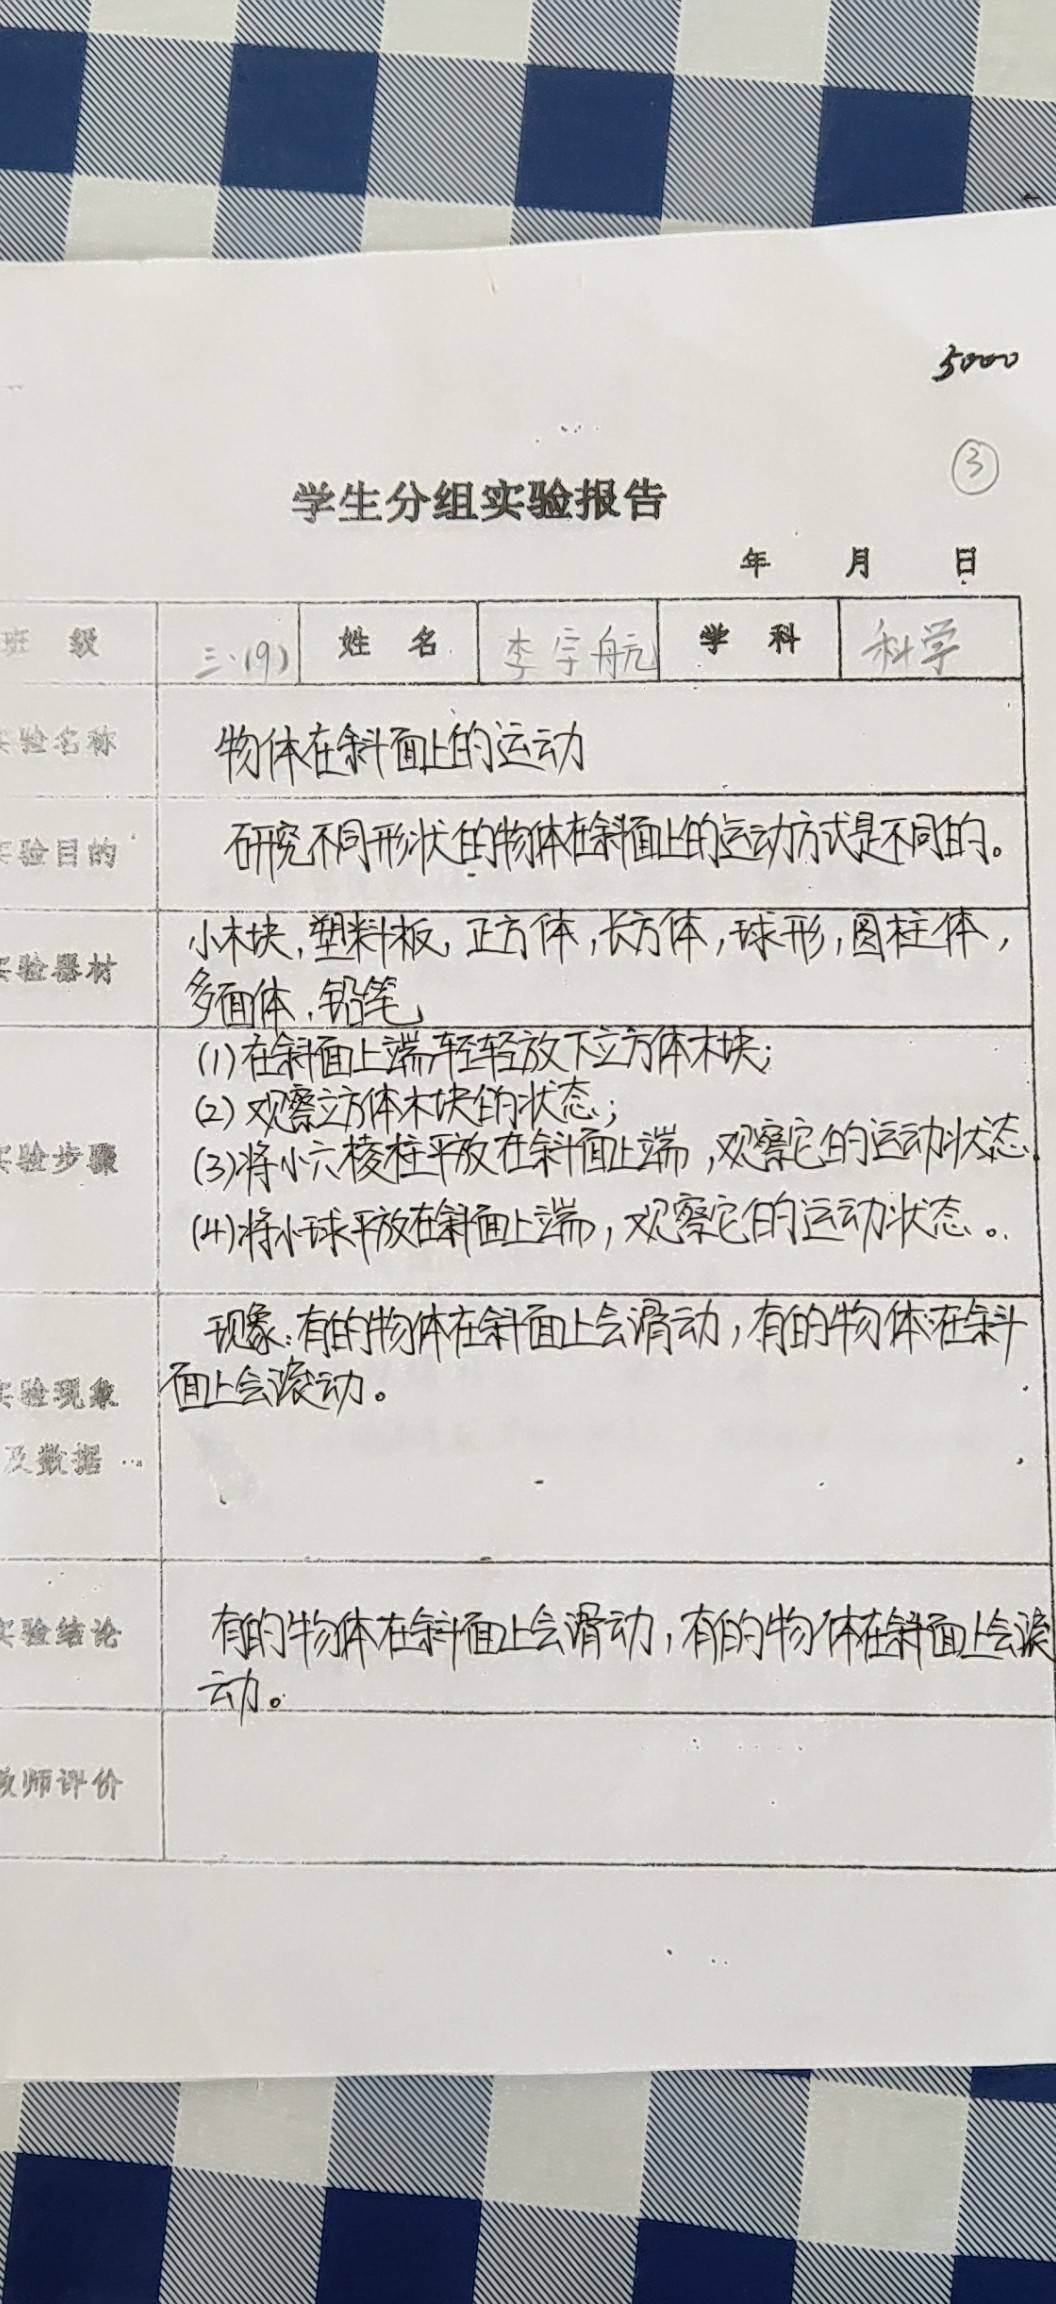 5000
③
学生分组实验报告
年 月 日
班 级 三.(9) 姓 名 李宇航 学 科 科学
实验名称 物体在斜面上的运动
实验目的 研究不同形状的物体在斜面上的运动方式是不同的。
实验器材 小木块,塑料板,正方体,长方体,球形,圆柱体,
多面体,铅笔
(1)在斜面上端轻轻放下立方体木块;
(2)观察立方体木块的状态;
实验步骤 (3)将小六棱柱平放在斜面上端,观察它的运动状态.
(4)将小球平放在斜面上端,观察它的运动状态。
现象:有的物体在斜面上会滑动,有的物体在斜
面上会滚动。
实验现象
及数据
实验结论 有的物体在斜面上会滑动,有的物体在斜面上会滚
动。
教师评价